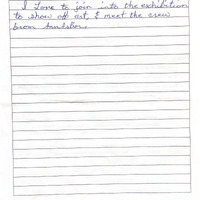 I Love to join into the exhibition
to show off art, & meet the crew
from